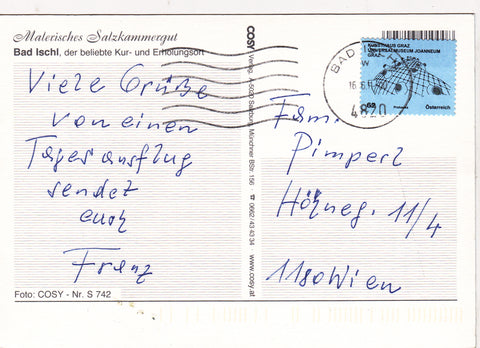 Malerisches Salzkammergut
Bad Ischl, der beliebte Kur- und Erholungsort
Viele Grüße
von einen
Tagesausflug
sendet
euch
Franz
Foto: COSY - Nr. S 742
COSY Verlag, A-5020 Salzburg, Münchner BSt. 156 ☎ 0662/43 42 34 www.cosy.at
KUNSTHAUS GRAZ
UNIVERSALMUSEUM JOANNEUM
GRAZ
62
Österreich
BAD
4820
Fam.
Pimperl
11/4
1180 Wien